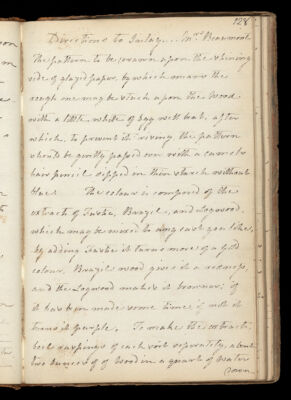 128
Directions to Inlay... Mrs Beaumont
The pattern to be drawn upon the shining
side of glazed paper, by which means the
rough one may be stuck upon the Wood
with a little white of egg well beat, after
which, to prevent it the pattern
should be gently passed over with a camels
hair pencil dipped in thin starch without
blue. The colour is composed of the
extracts of Fustic, Brazil, and Logwood,
which may be mixed to any cast you like,
by adding Fustic it turns more of a gold
colour, Brazil wood gives it a redness,
and the Logwood makes it browner; if
it has been made some time if not it
turns it purple. To make the extract,
boil raspings of each sort separately, about
two ounces of wood in a quart of water
down